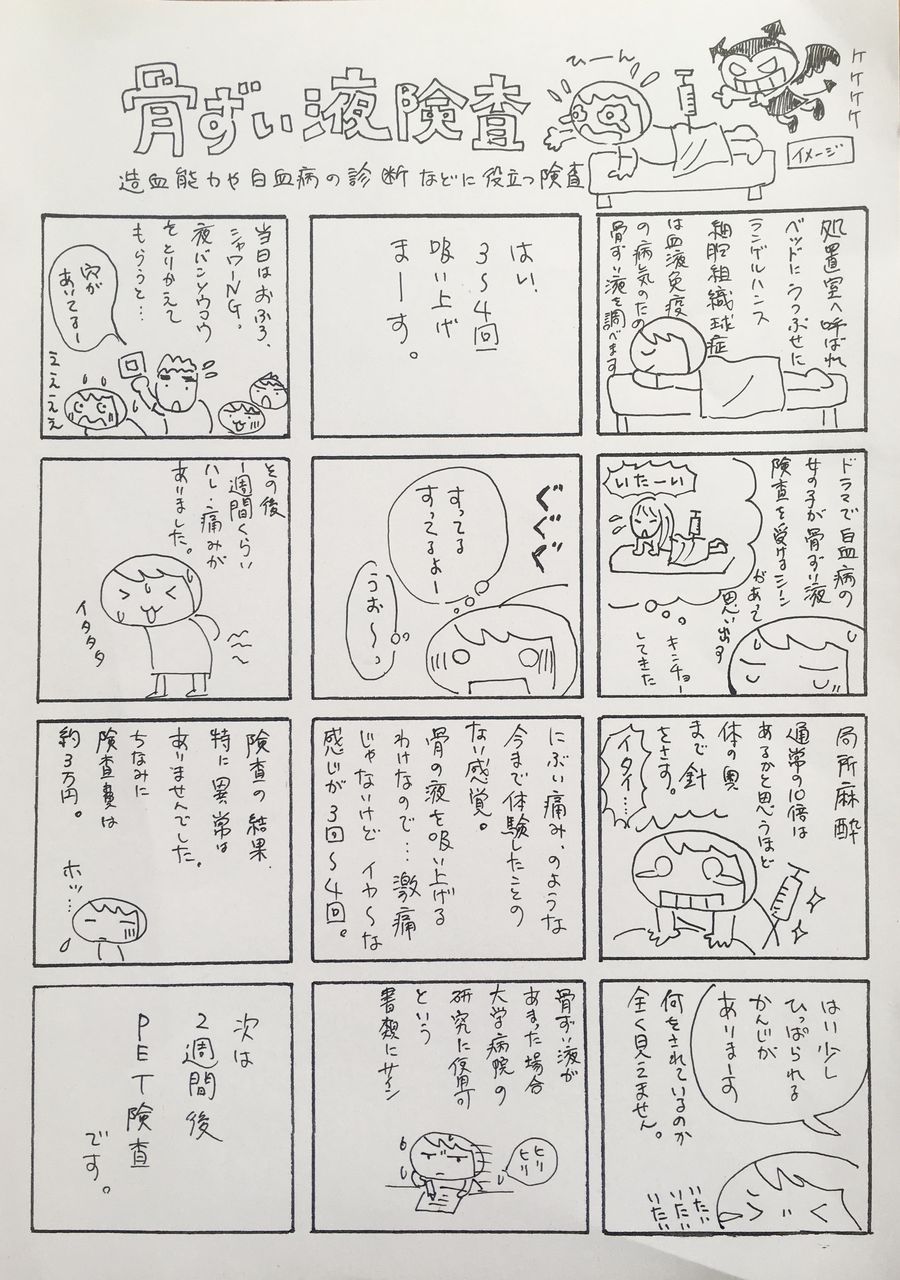 骨ずい液険査
造血能力や白血病の診断などに役立つ険査
ひーん
ケケケケ
イメージ
処置室へ呼ばれ
ベッドにうつぶせに
ランゲルハンス
細胞組織球症
は血液免疫
の病気のため
骨ずい液を調べます
ドラマで白血病の
女の子が骨ずい液
険査を受けるシーン
があって
思い出す
いたーい
キンチョー
してきた
局所麻酔
通常の10倍は
あるかと思うほど
体の奥
まで針
をさす。
イタイ…
はい少し
ひっぱられる
かんじが
ありまーす
何をされているのか
全く見えません。
いたい
いたい
いたい
はい、
3〜4回
吸い上げ
まーす。
ぐぐぐ
すってる
すってるよー
うお〜っ
にぶい痛み、のような
今まで体験したことの
ない感覚。
骨の液を吸い上げる
わけなので…激痛
じゃないけどイヤ〜な
感じが3回〜4回。
骨ずい液が
あまった場合
大学病院の
研究に使用可
という
書類にサイン
ヒリ
ヒリ
当日はおふろ、
シャワーNG。
夜バンソウコウ
をとりかえて
もらうと…
穴が
あいてるー
えええええ
その後
一週間くらい
ハレ・痛みが
ありました。
イタタタ
険査の結果、
特に異常は
ありませんでした。
ちなみに
険査費は
約3万円。
ホッ…
次は
2週間後
PET険査
です。